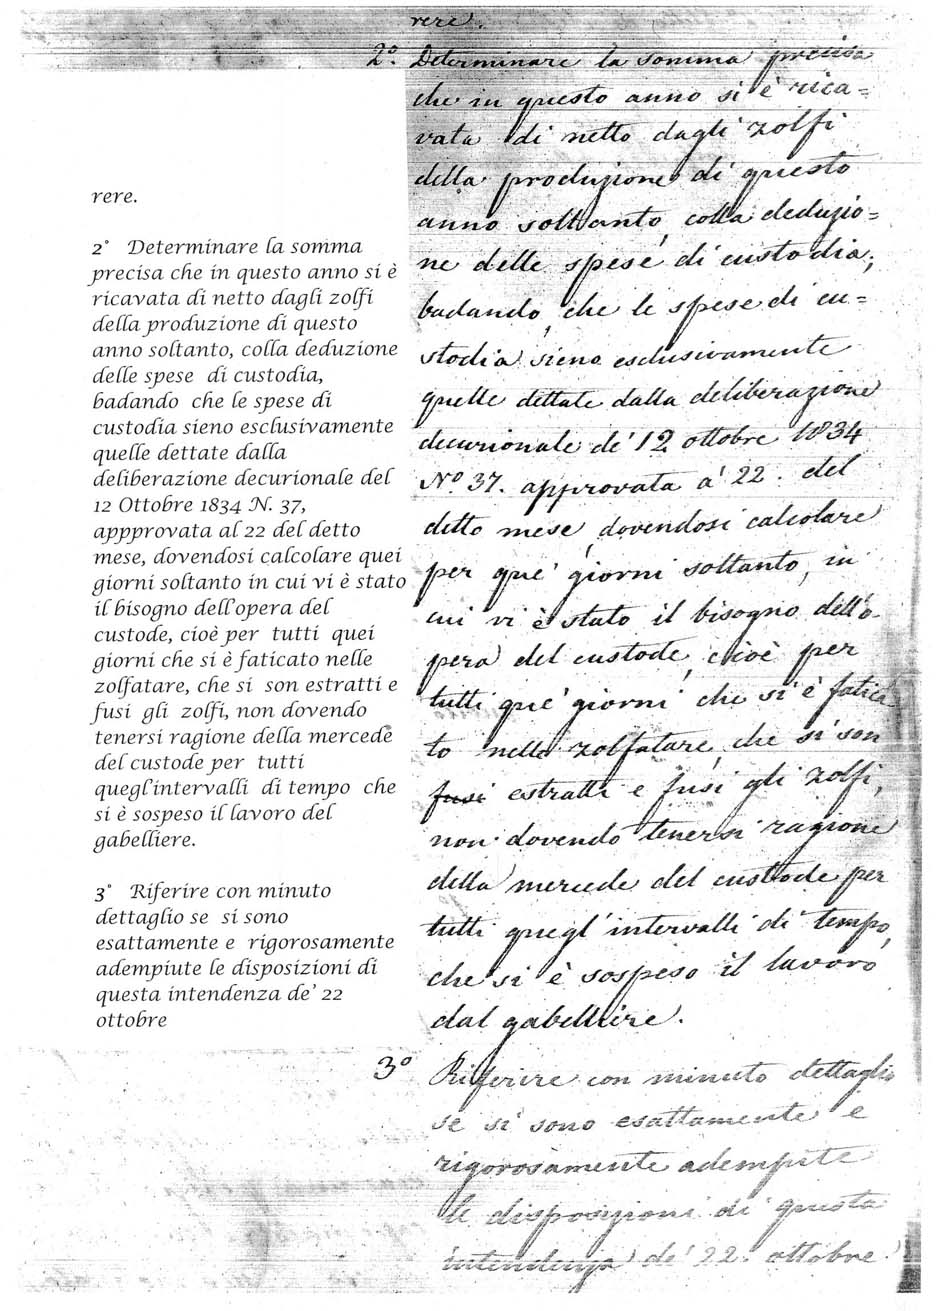 rere.
2° Determinare la somma
precisa che in questo anno si è
ricavata di netto dagli zolfi
della produzione di questo
anno soltanto, colla deduzione
delle spese di custodia,
badando che le spese di
custodia sieno esclusivamente
quelle dettate dalla
deliberazione decurionale del
12 Ottobre 1834 N. 37,
appprovata al 22 del detto
mese, dovendosi calcolare quei
giorni soltanto in cui vi è stato
il bisogno dell'opera del
custode, cioè per tutti quei
giorni che si è faticato nelle
zolfatare, che si son estratti e
fusi gli zolfi, non dovendo
tenersi ragione della mercede
del custode per tutti
quegl'intervalli di tempo che
si è sospeso il lavoro del
gabelliere.
3° Riferire con minuto
dettaglio se si sono
esattamente e rigorosamente
adempiute le disposizioni di
questa intendenza de' 22
ottobre
rere.
2° Determinare la somma precisa
che in questo anno si è rica=
vata di netto dagli zolfi
della produzione di questo
anno soltanto, colla deduzio=
ne delle spese di custodia;
badando, che le spese di cu=
stodia sieno esclusivamente
quelle dettate dalla deliberazione
decurionale de' 12 ottobre 1834
N° 37. approvata a' 22. del
detto mese, dovendosi calcolare
per que' giorni soltanto, in
cui vi è stato il bisogno dell'o-
pera del custode, cioè per
tutti que' giorni, che si è fatica
to nelle zolfatare, che si son
fusi estratti e fusi gli zolfi,
non dovendo tenersi ragione
della mercede del custode per
tutti quegl'intervalli di tempo,
che si è sospeso il lavoro
dal gabelliere.
3° Riferire con minuto dettaglio
se si sono esattamente e
rigorosamente adempite
le disposizioni di questa
intendenza de' 22. ottobre